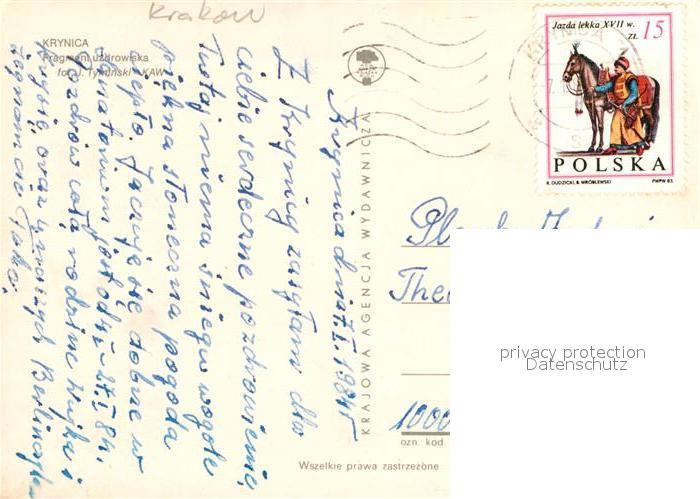 Krakow
KRYNICA
Fragment uzdrowiska
fot. J. Tymiński - KAW
Krynica dnia 7.I.1984r
Z Krynicy zasyłam dla
ciebie serdeczne pozdrowienia
Tutaj niema śniegu wogóle
piękna słoneczna pogoda
ciepło. Czuję się dobrze w
sanatorium jest od 4 - 27.I.84r.
Pozdrów całą rodzinę wujka i
Krysię oraz
żegnam cię
KRAJOWA AGENCJA WYDAWNICZA
Jazda lekka XVII w.
ZŁ 15
POLSKA
K. DUDZICKI, B. WRÓBLEWSKI PWPW 83
KRYNICA
1000
ozn. kod.
Wszelkie prawa zastrzeżone
privacy protection
Datenschutz